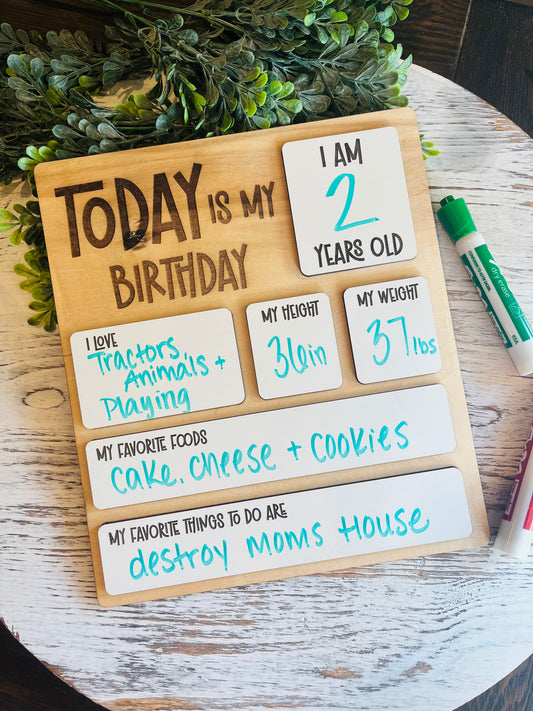 TODAY IS MY
BIRTHDAY
I AM
2
YEARS OLD
I LOVE
Tractors
Animals +
Playing
MY HEIGHT
36in
MY WEIGHT
37lbs
MY FAVORITE FOODS
cake, cheese + cookies
MY FAVORITE THINGS TO DO ARE
destroy moms House
dry erase